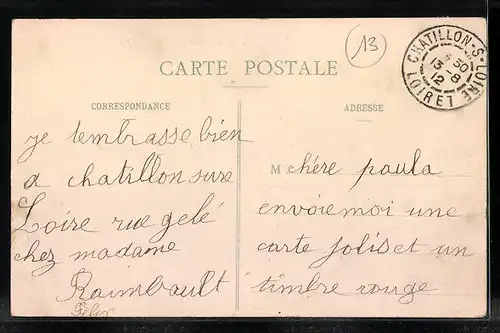 13
CHATILLON-S-LOIRE
13 8 30
12
LOIRET
CARTE POSTALE
CORRESPONDANCE
je tembrasse bien
a chatillon sure
Loire rue gelé
chez madame
Raimbault
Félix
ADRESSE
M chére paula
envoiemoi une
carte jolis et un
timbre rouge